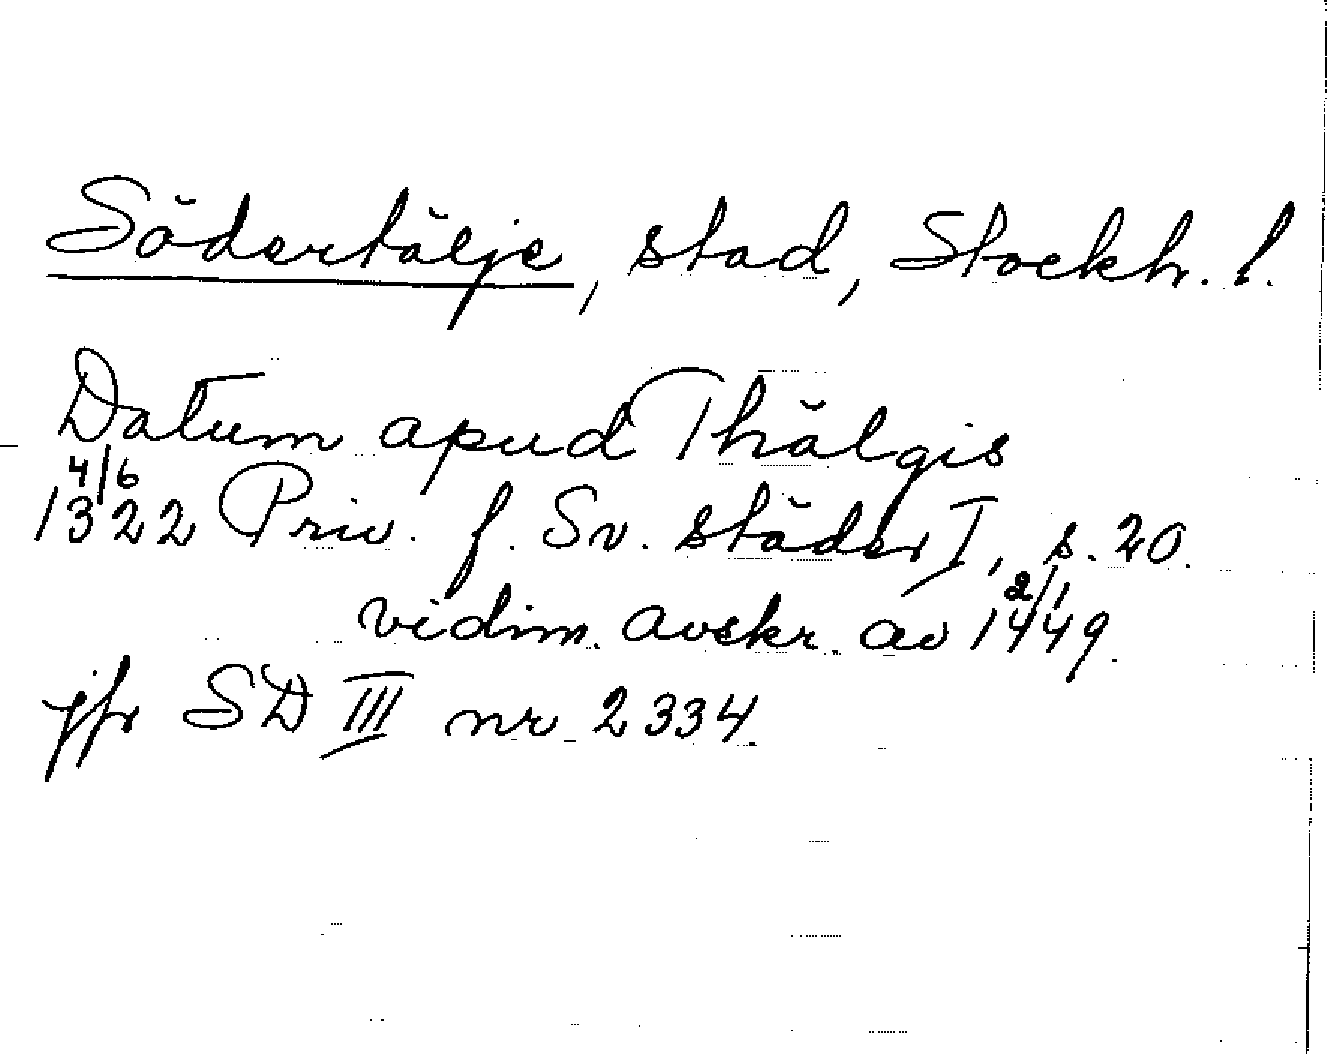 Södertälje, stad, Stockh. l.
Datum apud Thälgis
4/6
1322 Priv. f. Sv. städer I, s. 20.
2/1
vidim. avskr. av 1449.
jfr SD III nr 2334.